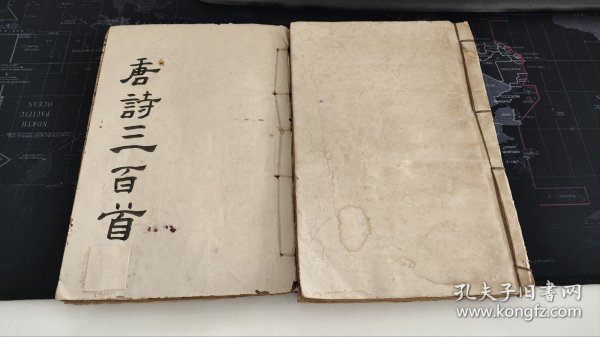 唐詩三百首
NORTH
PACIFIC
OCEAN
孔夫子旧书网
www.kongfz.com